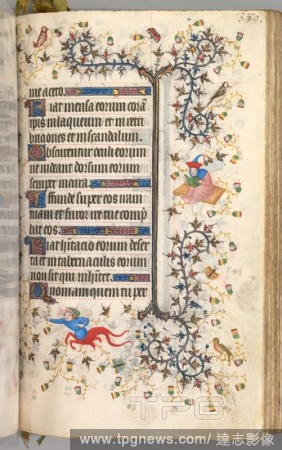 329.
me aceto.
Fiat mensa eorum corā
ipis in laqueum et in retri
butiones et in scandalum.
Obscurentur oculi eorum
ne videant dorsum eorum
semper incurva.
Effunde super eos iram
tuam et furor ire tue comp
hat eos
Fiat habitacio eorum deser
ta et in tabernaculis eorum
non sit qui inhitet.
Quoniam quem tu per
TPG
www.tpgnews.com/達志影像